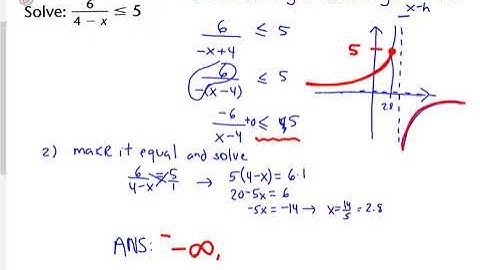 Solve: 6/(4 − x) ≤ 5
x-h
6/(-x+4) ≤ 5
6/(-(x-4)) ≤ 5
-6/(x-4) +0 ≤ 5
5
2.8
2) make it equal and solve
6/(4-x) = 5/1 → 5(4-x) = 6·1
20-5x = 6
-5x = -14 → x = 14/5 = 2.8
ANS: -∞,